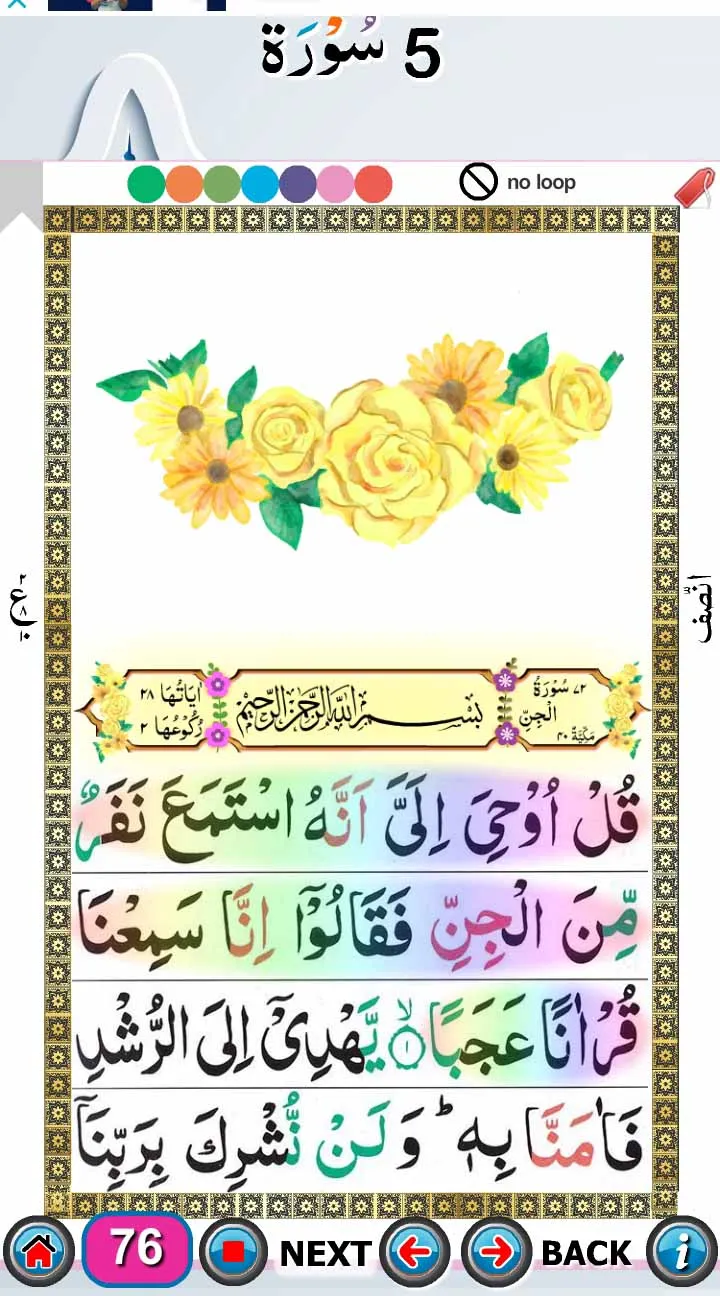 5 سُوْرَة
no loop
انّصف
٢
ع
٨
١٠
٧٢ سُوْرَةُ الْجِنِّ مَكِّيَّةٌ ٤٠
بِسْمِ اللهِ الرَّحْمٰنِ الرَّحِيْمِ
اٰيَاتُهَا ٢٨
رُكُوْعُهَا ٢
قُلْ اُوْحِيَ اِلَيَّ اَنَّهُ اسْتَمَعَ نَفَرٌ
مِّنَ الْجِنِّ فَقَالُوْۤا اِنَّا سَمِعْنَا
قُرْاٰنًا عَجَبًا ۙ﴿١﴾ يَّهْدِيْۤ اِلَى الرُّشْدِ
فَاٰمَنَّا بِهٖ ؕ وَلَنْ نُّشْرِكَ بِرَبِّنَاۤ
76 NEXT BACK i